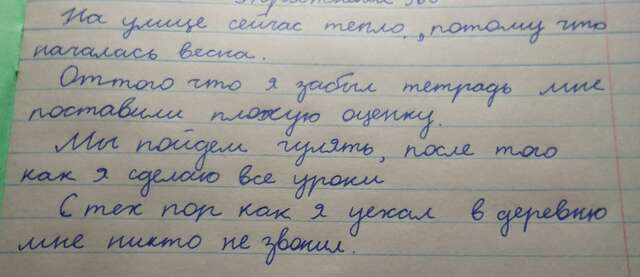 Упражнение
На улице сейчас тепло, потому что
началась весна.
Оттого что я забыл тетрадь мне
поставили плохую оценку.
Мы пойдем гулять, после того
как я сделаю все уроки
С тех пор как я уехал в деревню
мне никто не звонил.